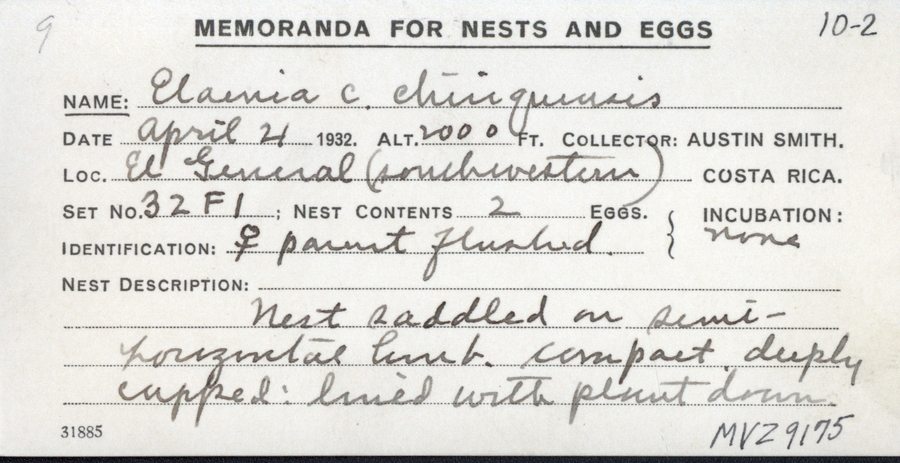 9
MEMORANDA FOR NESTS AND EGGS
10-2
NAME: Elaenia c. chiriquensis
DATE April 21 1932. ALT. 2000 FT. COLLECTOR: AUSTIN SMITH.
LOC. El General (southwestern) COSTA RICA.
SET NO. 32 F 1 ; NEST CONTENTS 2 EGGS. { INCUBATION:
IDENTIFICATION: ♀ parent flushed. none
NEST DESCRIPTION:
Nest saddled on semi-
horizontal limb. compact, deeply
cupped: lined with plant down.
31885
MVZ 9175